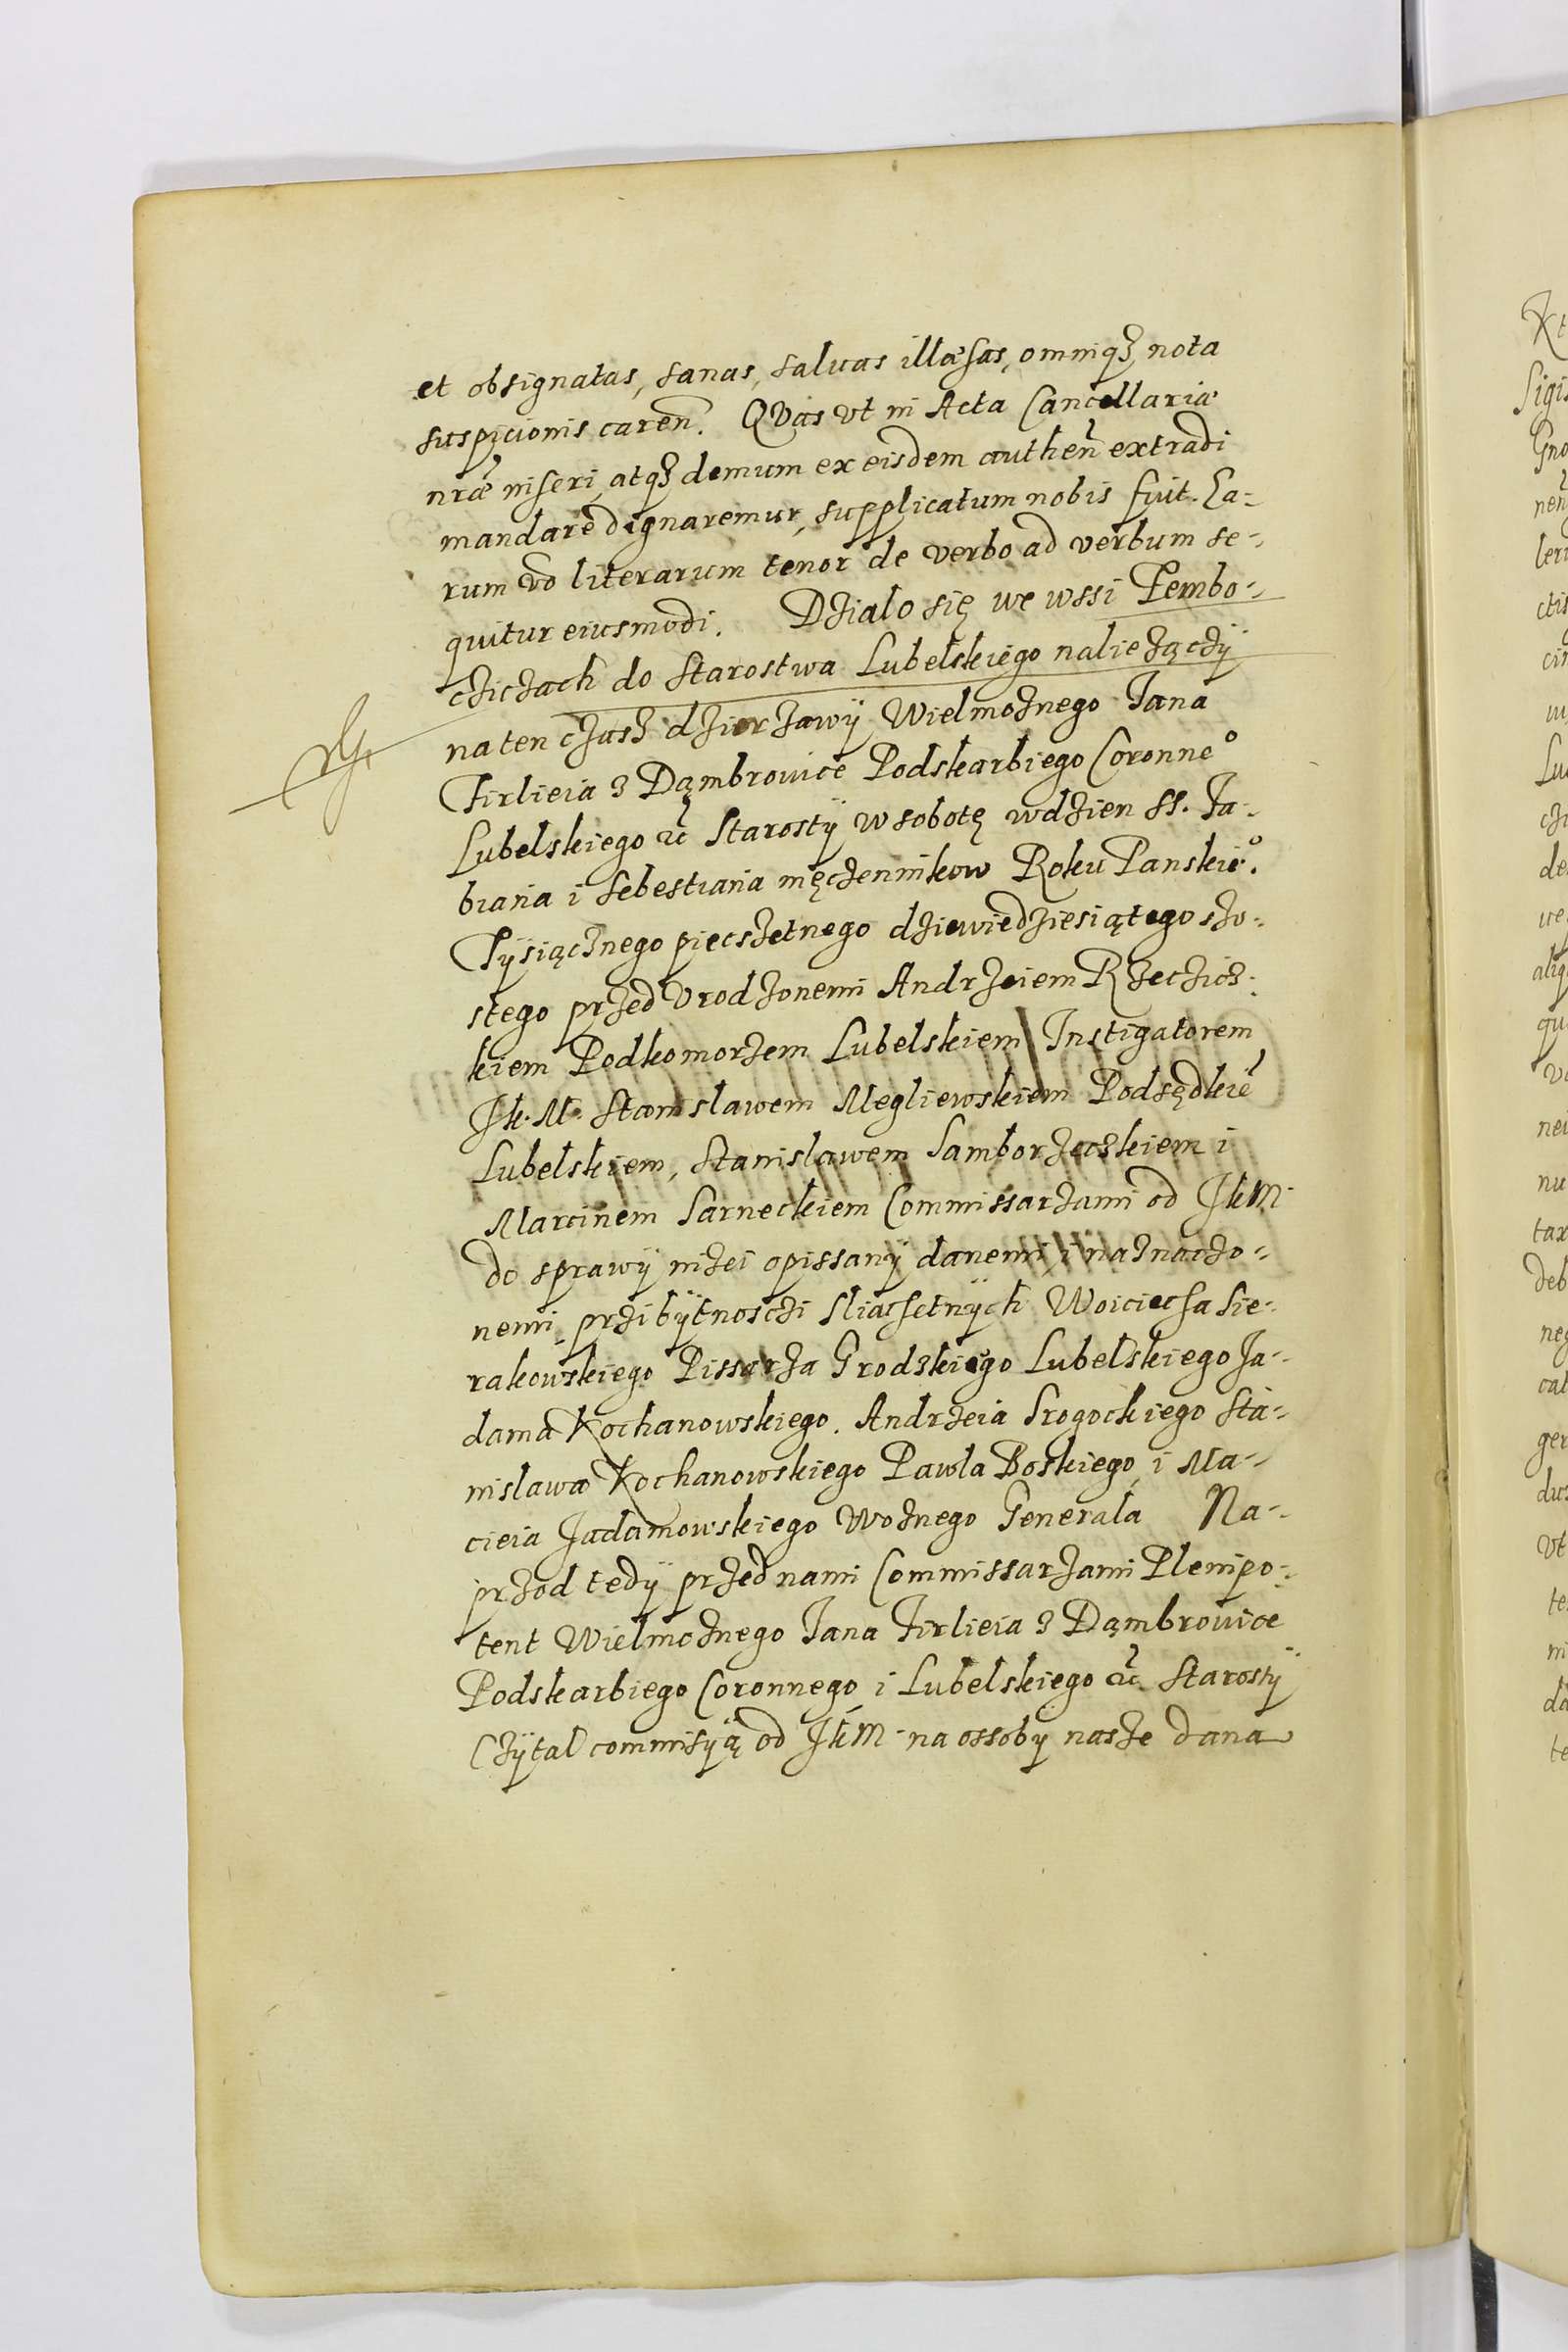 et obsignatas, sanas, saluas illæsas, omniq3 nota
suspicionis caren̄. QVas vt in Acta Cancellariæ
nr̄æ inseri, atq3 demum ex eisdem authen̄ extradi
mandare dignaremur, supplicatum nobis fuit. Ea-
rum v̄o literarum tenor de verbo ad verbum se-
quitur eiusmodi. Działo się we wssi Pembo-
czicżach do Starostwa Lubelskiego należączÿ
na ten cżasz dzierżawÿ Wielmożnego Jana
Firlieia z Dąmbrowice Podskarbiego Coronneº
Lubelskiego &c Starostÿ w sobotę w dzien SS. Fa-
biana i Sebestiana męczennikow Roku Panskieº.
Tÿsiącznego piecszetnego dziewiedziesiątego szo-
stego przed Vrodzonemi Andrzeiem Rzeczicz-
kiem Podkomorzem Lubelskiem Instigatorem
JK.M. Stanislawem Megliewskiem Podsędkiē
Lubelskiem, Stanislawem Samborzeczkiem i
Marcinem Sarneckiem Commissarzami od JKM
do sprawÿ niżei opissanÿ danemi i naznaczo-
nemi, przi bÿtnosczi sliachetnÿch Woiciecha Sie-
rakowskiego Pissarza Grodzkiego Lubelskiego Ja-
dama Kochanowskiego. Andrzeia Srogockiego Sta-
nislawa Kochanowskiego Pawla Boskiego, i Ma-
cieia Jadamowskiego Wożnego Generala Na-
przod tedÿ przed nami Commissarzami Plenipo-
tent Wielmożnego Jana Firlieia z Dąmbrowice
Podskarbiego Coronnego i Lubelskiego &c. Starostÿ
Czÿtal commisÿą od JKM na ossobÿ nasze dana